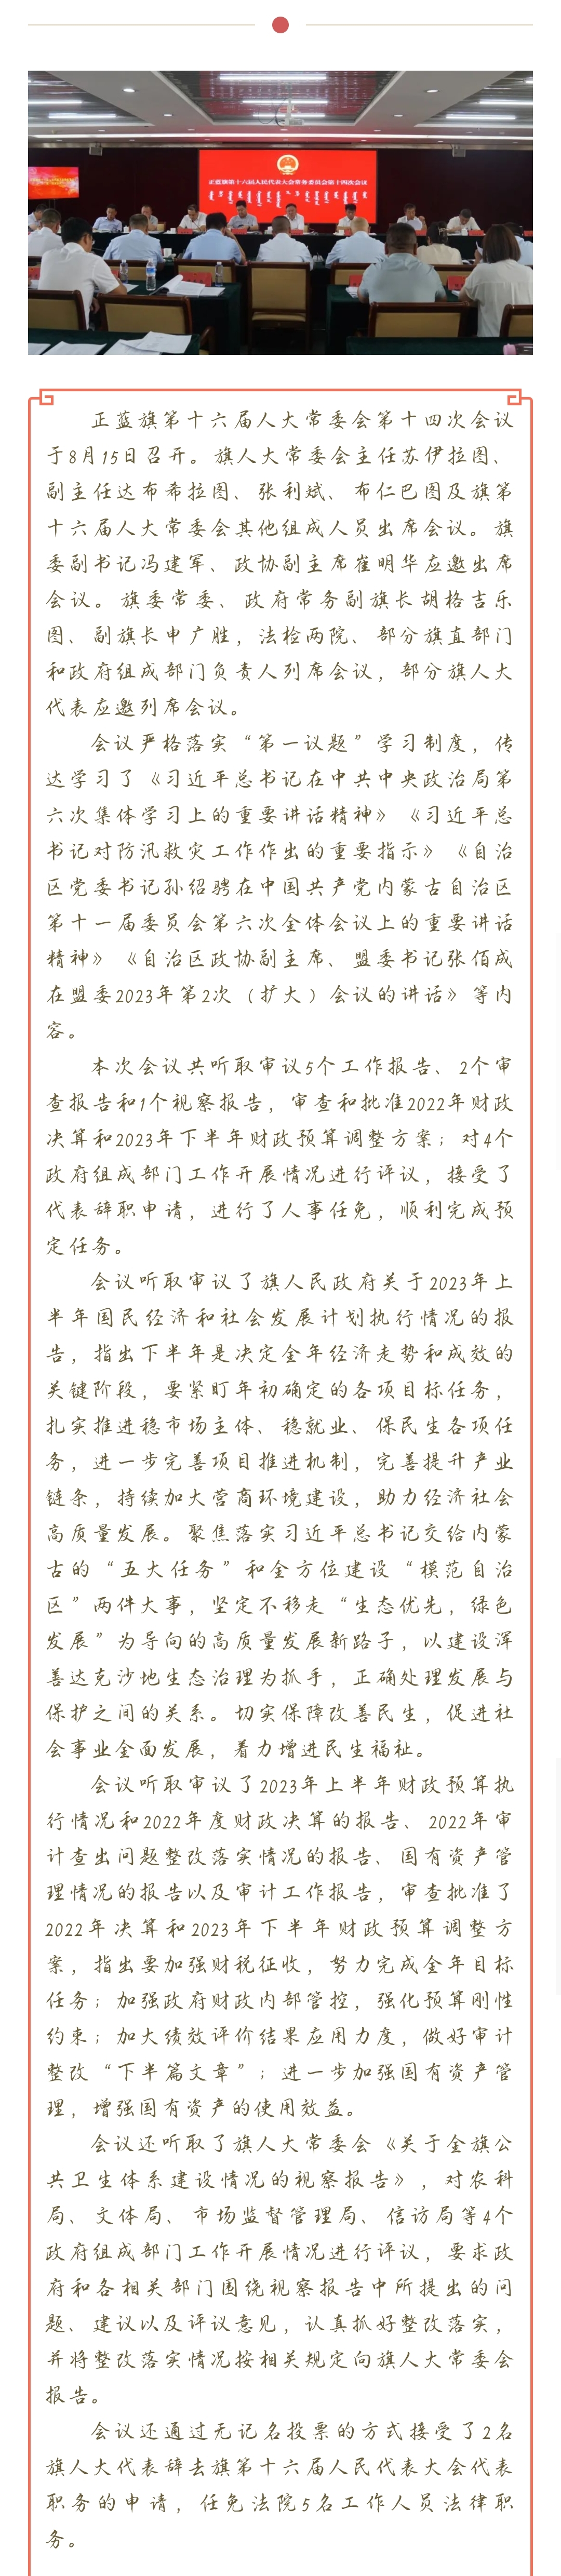 正蓝旗第十六届人民代表大会常务委员会第十四次会议
正蓝旗第十六届人大常委会第十四次会议
于8月15日召开。旗人大常委会主任苏伊拉图、
副主任达布希拉图、张利斌、布仁巴图及旗第
十六届人大常委会其他组成人员出席会议。旗
委副书记冯建军、政协副主席崔明华应邀出席
会议。旗委常委、政府常务副旗长胡格吉乐
图、副旗长申广胜，法检两院、部分旗直部门
和政府组成部门负责人列席会议，部分旗人大
代表应邀列席会议。
会议严格落实“第一议题”学习制度，传
达学习了《习近平总书记在中共中央政治局第
六次集体学习上的重要讲话精神》《习近平总
书记对防汛救灾工作作出的重要指示》《自治
区党委书记孙绍骋在中国共产党内蒙古自治区
第十一届委员会第六次全体会议上的重要讲话
精神》《自治区政协副主席、盟委书记张佰成
在盟委2023年第2次（扩大）会议的讲话》等内
容。
本次会议共听取审议5个工作报告、2个审
查报告和1个视察报告，审查和批准2022年财政
决算和2023年下半年财政预算调整方案；对4个
政府组成部门工作开展情况进行评议，接受了
代表辞职申请，进行了人事任免，顺利完成预
定任务。
会议听取审议了旗人民政府关于2023年上
半年国民经济和社会发展计划执行情况的报
告，指出下半年是决定全年经济走势和成效的
关键阶段，要紧盯年初确定的各项目标任务，
扎实推进稳市场主体、稳就业、保民生各项任
务，进一步完善项目推进机制，完善提升产业
链条，持续加大营商环境建设，助力经济社会
高质量发展。聚焦落实习近平总书记交给内蒙
古的“五大任务”和全方位建设“模范自治
区”两件大事，坚定不移走“生态优先，绿色
发展”为导向的高质量发展新路子，以建设浑
善达克沙地生态治理为抓手，正确处理发展与
保护之间的关系。切实保障改善民生，促进社
会事业全面发展，着力增进民生福祉。
会议听取审议了2023年上半年财政预算执
行情况和2022年度财政决算的报告、2022年审
计查出问题整改落实情况的报告、国有资产管
理情况的报告以及审计工作报告，审查批准了
2022年决算和2023年下半年财政预算调整方
案，指出要加强财税征收，努力完成全年目标
任务；加强政府财政内部管控，强化预算刚性
约束；加大绩效评价结果应用力度，做好审计
整改“下半篇文章”；进一步加强国有资产管
理，增强国有资产的使用效益。
会议还听取了旗人大常委会《关于全旗公
共卫生体系建设情况的视察报告》，对农科
局、文体局、市场监督管理局、信访局等4个
政府组成部门工作开展情况进行评议，要求政
府和各相关部门围绕视察报告中所提出的问
题、建议以及评议意见，认真抓好整改落实，
并将整改落实情况按相关规定向旗人大常委会
报告。
会议还通过无记名投票的方式接受了2名
旗人大代表辞去旗第十六届人民代表大会代表
职务的申请，任免法院5名工作人员法律职
务。